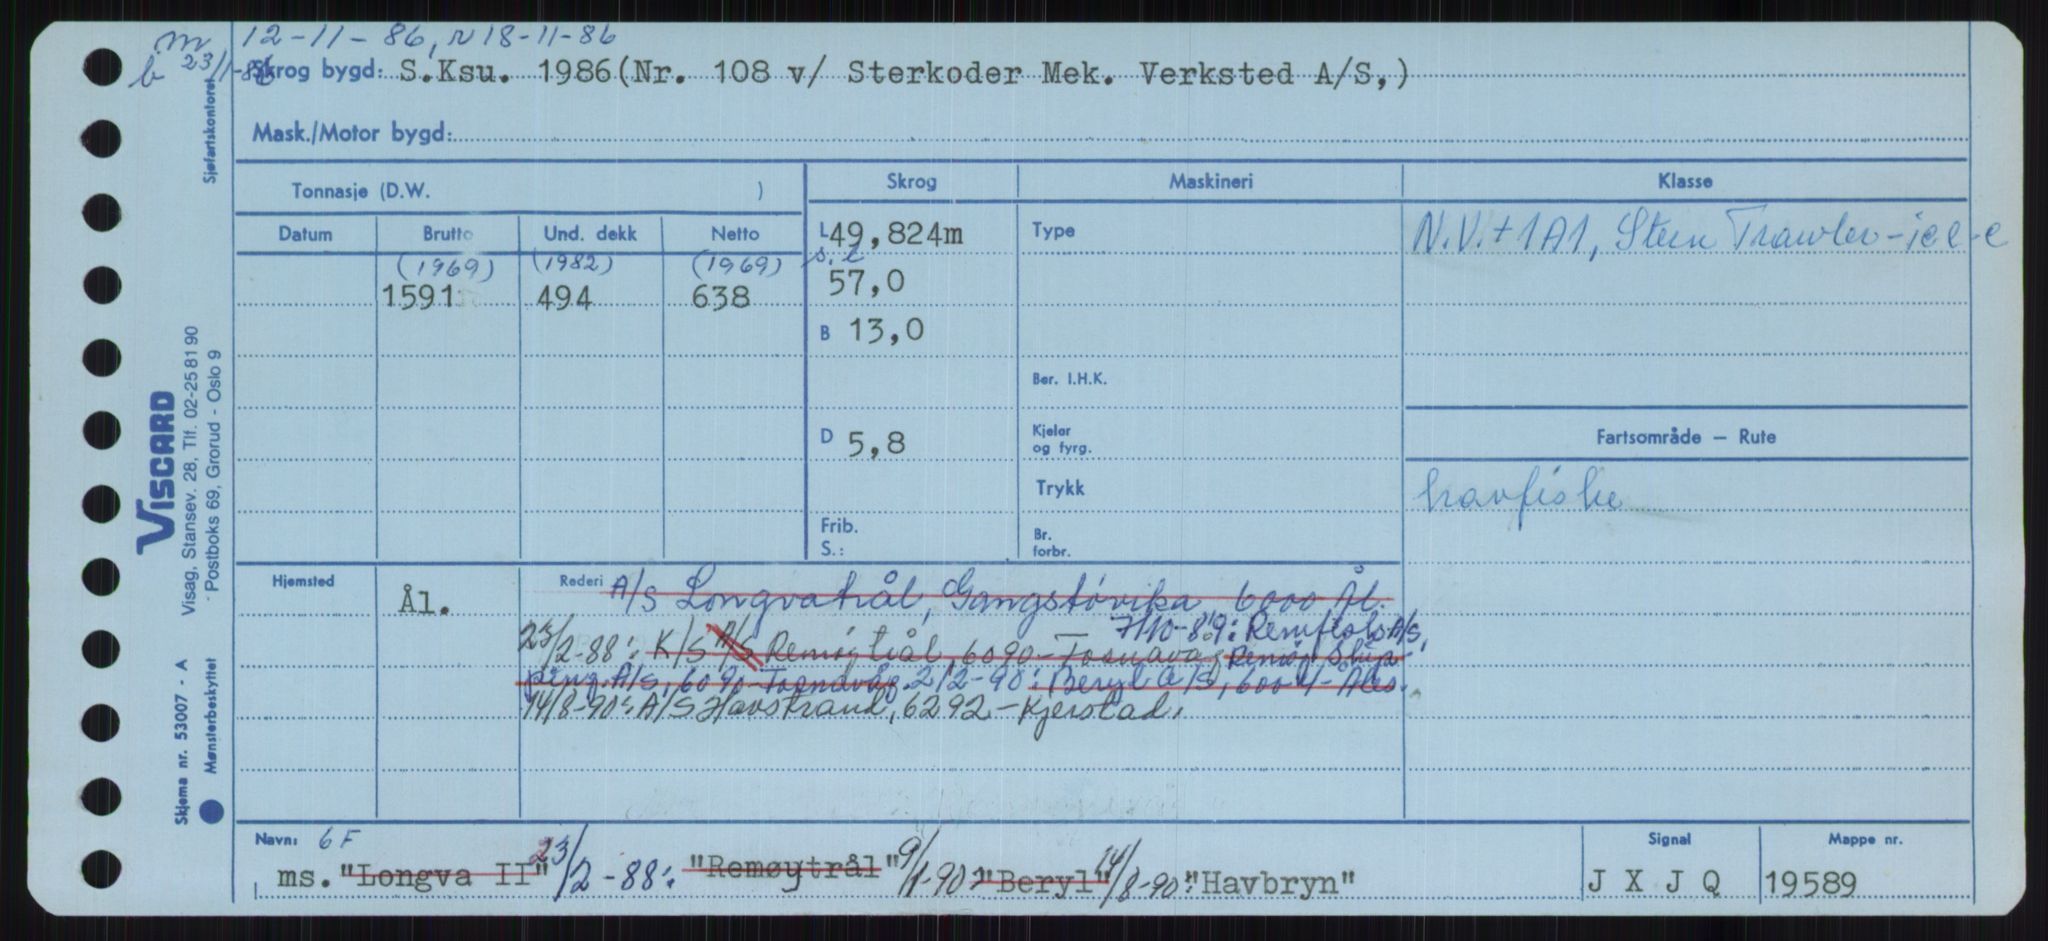 m 12-11-86, r 18-11-86
b 23/1-86
Skrog bygd: S.Ksu. 1986(Nr. 108 v/ Sterkoder Mek. Verksted A/S,)
Mask./Motor bygd:
Sjøfartskontoret
Tonnasje (D.W. )
Skrog Maskineri Klasse
Datum Brutto Und. dekk Netto
L 49,824m
Type
N.V.+1A1, Stern Trawler-ice-c
(1969) (1982) (1969)
s.l
1591 494 638
57,0
B 13,0
Ber. I.H.K.
D 5,8
Kjeler og fyrg.
Fartsområde – Rute
Trykk
havfiske
Frib. S.:
Br. forbr.
VISCARD
Visag, Stansev. 28, Tlf. 02-25 81 90
Postboks 69, Grorud - Oslo 9
Skjema nr. 53007 - A
Mønsterbeskyttet
Hjemsted Ål.
Rederi A/S Longvatrål, Gangstøvika 6000 Ål.
7/10-89: Remfisk A/S,
23/2-88: K/S A/S Remøytrål, 6090-Fosnavåg Remøy Ship-
ping A/S, 6090-Fosnavåg. 2/2-90: Beryl A/S, 6004-Åles.
14/8-90: A/S Havstrand, 6292-Kjerstad.
Navn: 6F
Signal
Mappe nr.
ms. "Longva II" 23/2-88: "Remøytrål" 9/1-90: "Beryl" 14/8-90: "Havbryn"
J X J Q
19589